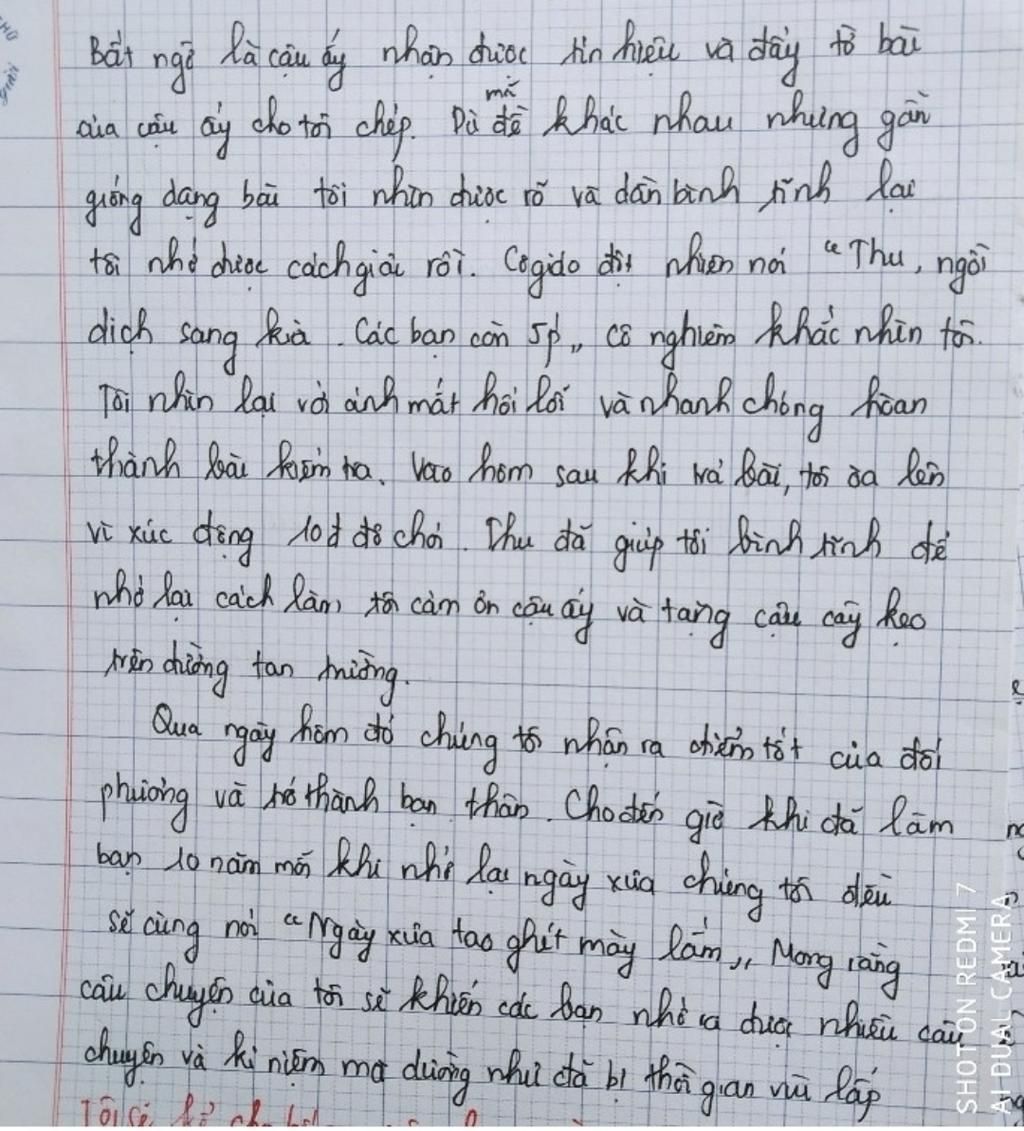 Bất ngờ là cậu ấy nhận được tín hiệu và đẩy tờ bài
của cậu ấy cho tôi chép. Dù mã đề khác nhau nhưng gần
giống dạng bài tôi nhìn được rõ và dần bình tĩnh lại
tôi nhớ được cách giải rồi. Cô giáo đột nhiên nói "Thu, ngồi
dịch sang kia. Các bạn còn 5p" cô nghiêm khắc nhìn tôi.
Tôi nhìn lại với ánh mắt hối lỗi và nhanh chóng hoàn
thành bài kiểm tra. Vào hôm sau khi trả bài, tôi òa lên
vì xúc động 10đ đỏ chói. Thu đã giúp tôi bình tĩnh để
nhớ lại cách làm, tôi cảm ơn cậu ấy và tặng cậu cây kẹo
trên đường tan trường.
Qua ngày hôm đó chúng tôi nhận ra điểm tốt của đối
phương và trở thành bạn thân. Cho đến giờ khi đã làm
bạn 10 năm mỗi khi nhớ lại ngày xưa chúng tôi đều
sẽ cùng nói "Ngày xưa tao ghét mày lắm" Mong rằng
câu chuyện của tôi sẽ khiến các bạn nhớ ra được nhiều câu
chuyện và kỉ niệm mà dường như đã bị thời gian vùi lấp
SHOT ON REDMI 7
AI DUAL CAMERA